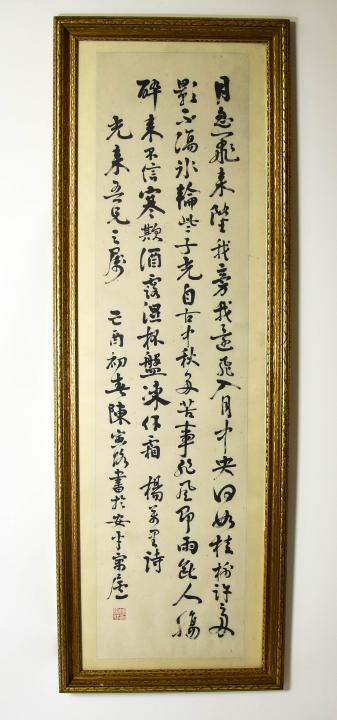 月忽飛來墮我旁我還飛入月中央何如桂樹許多
影不隔冰輪些子光自古中秋多苦事非風即雨斷人腸
醉來不信寒欺酒露濕杯盤凍作霜 楊萬里詩
光來吾兄之屬 己酉初春陳寅路書於安平寓廬